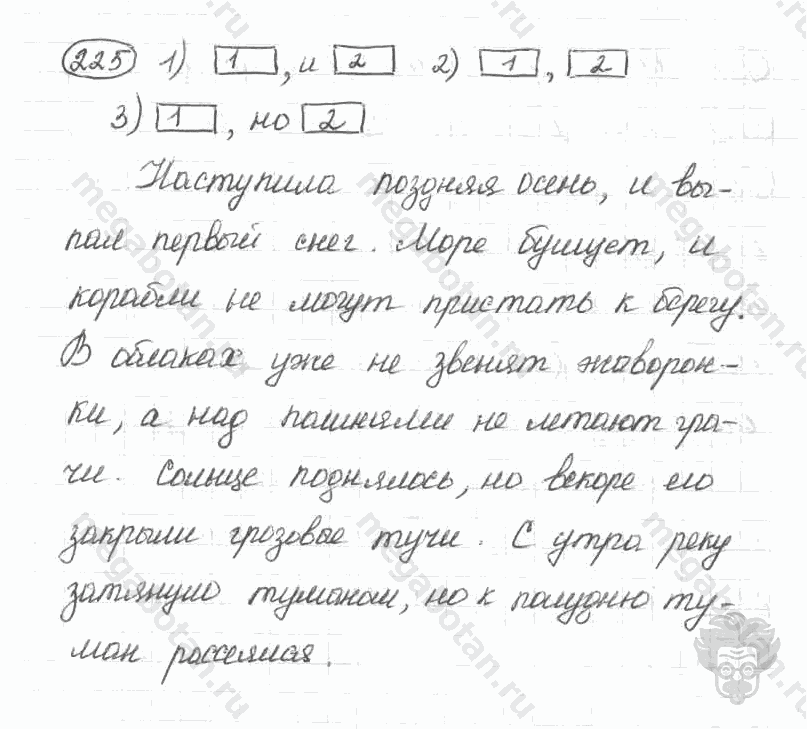 225 1) 1 , и 2 2) 1 , 2
3) 1 , но 2
Наступила поздняя осень, и вы-
пал первый снег. Море бушует, и
корабли не могут пристать к берегу.
В облаках уже не звенят жаворон-
ки, а над пашнями не летают гра-
чи. Солнце поднялось, но вскоре его
закрыли грозовые тучи. С утра реку
затянуло туманом, но к полудню ту-
ман рассеялся.
megabotan.ru